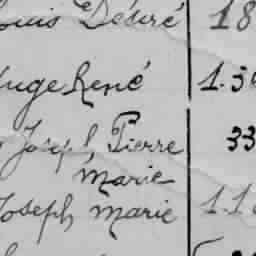 Louis Désiré 18
Ange René 1.5
Joseph Pierre 33
Marie
Joseph Marie 1.1